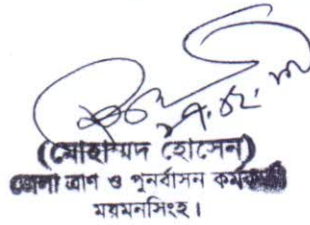 (মোহাম্মদ হোসেন)
জেলা ত্রাণ ও পুনর্বাসন কর্মকর্তা
ময়মনসিংহ।